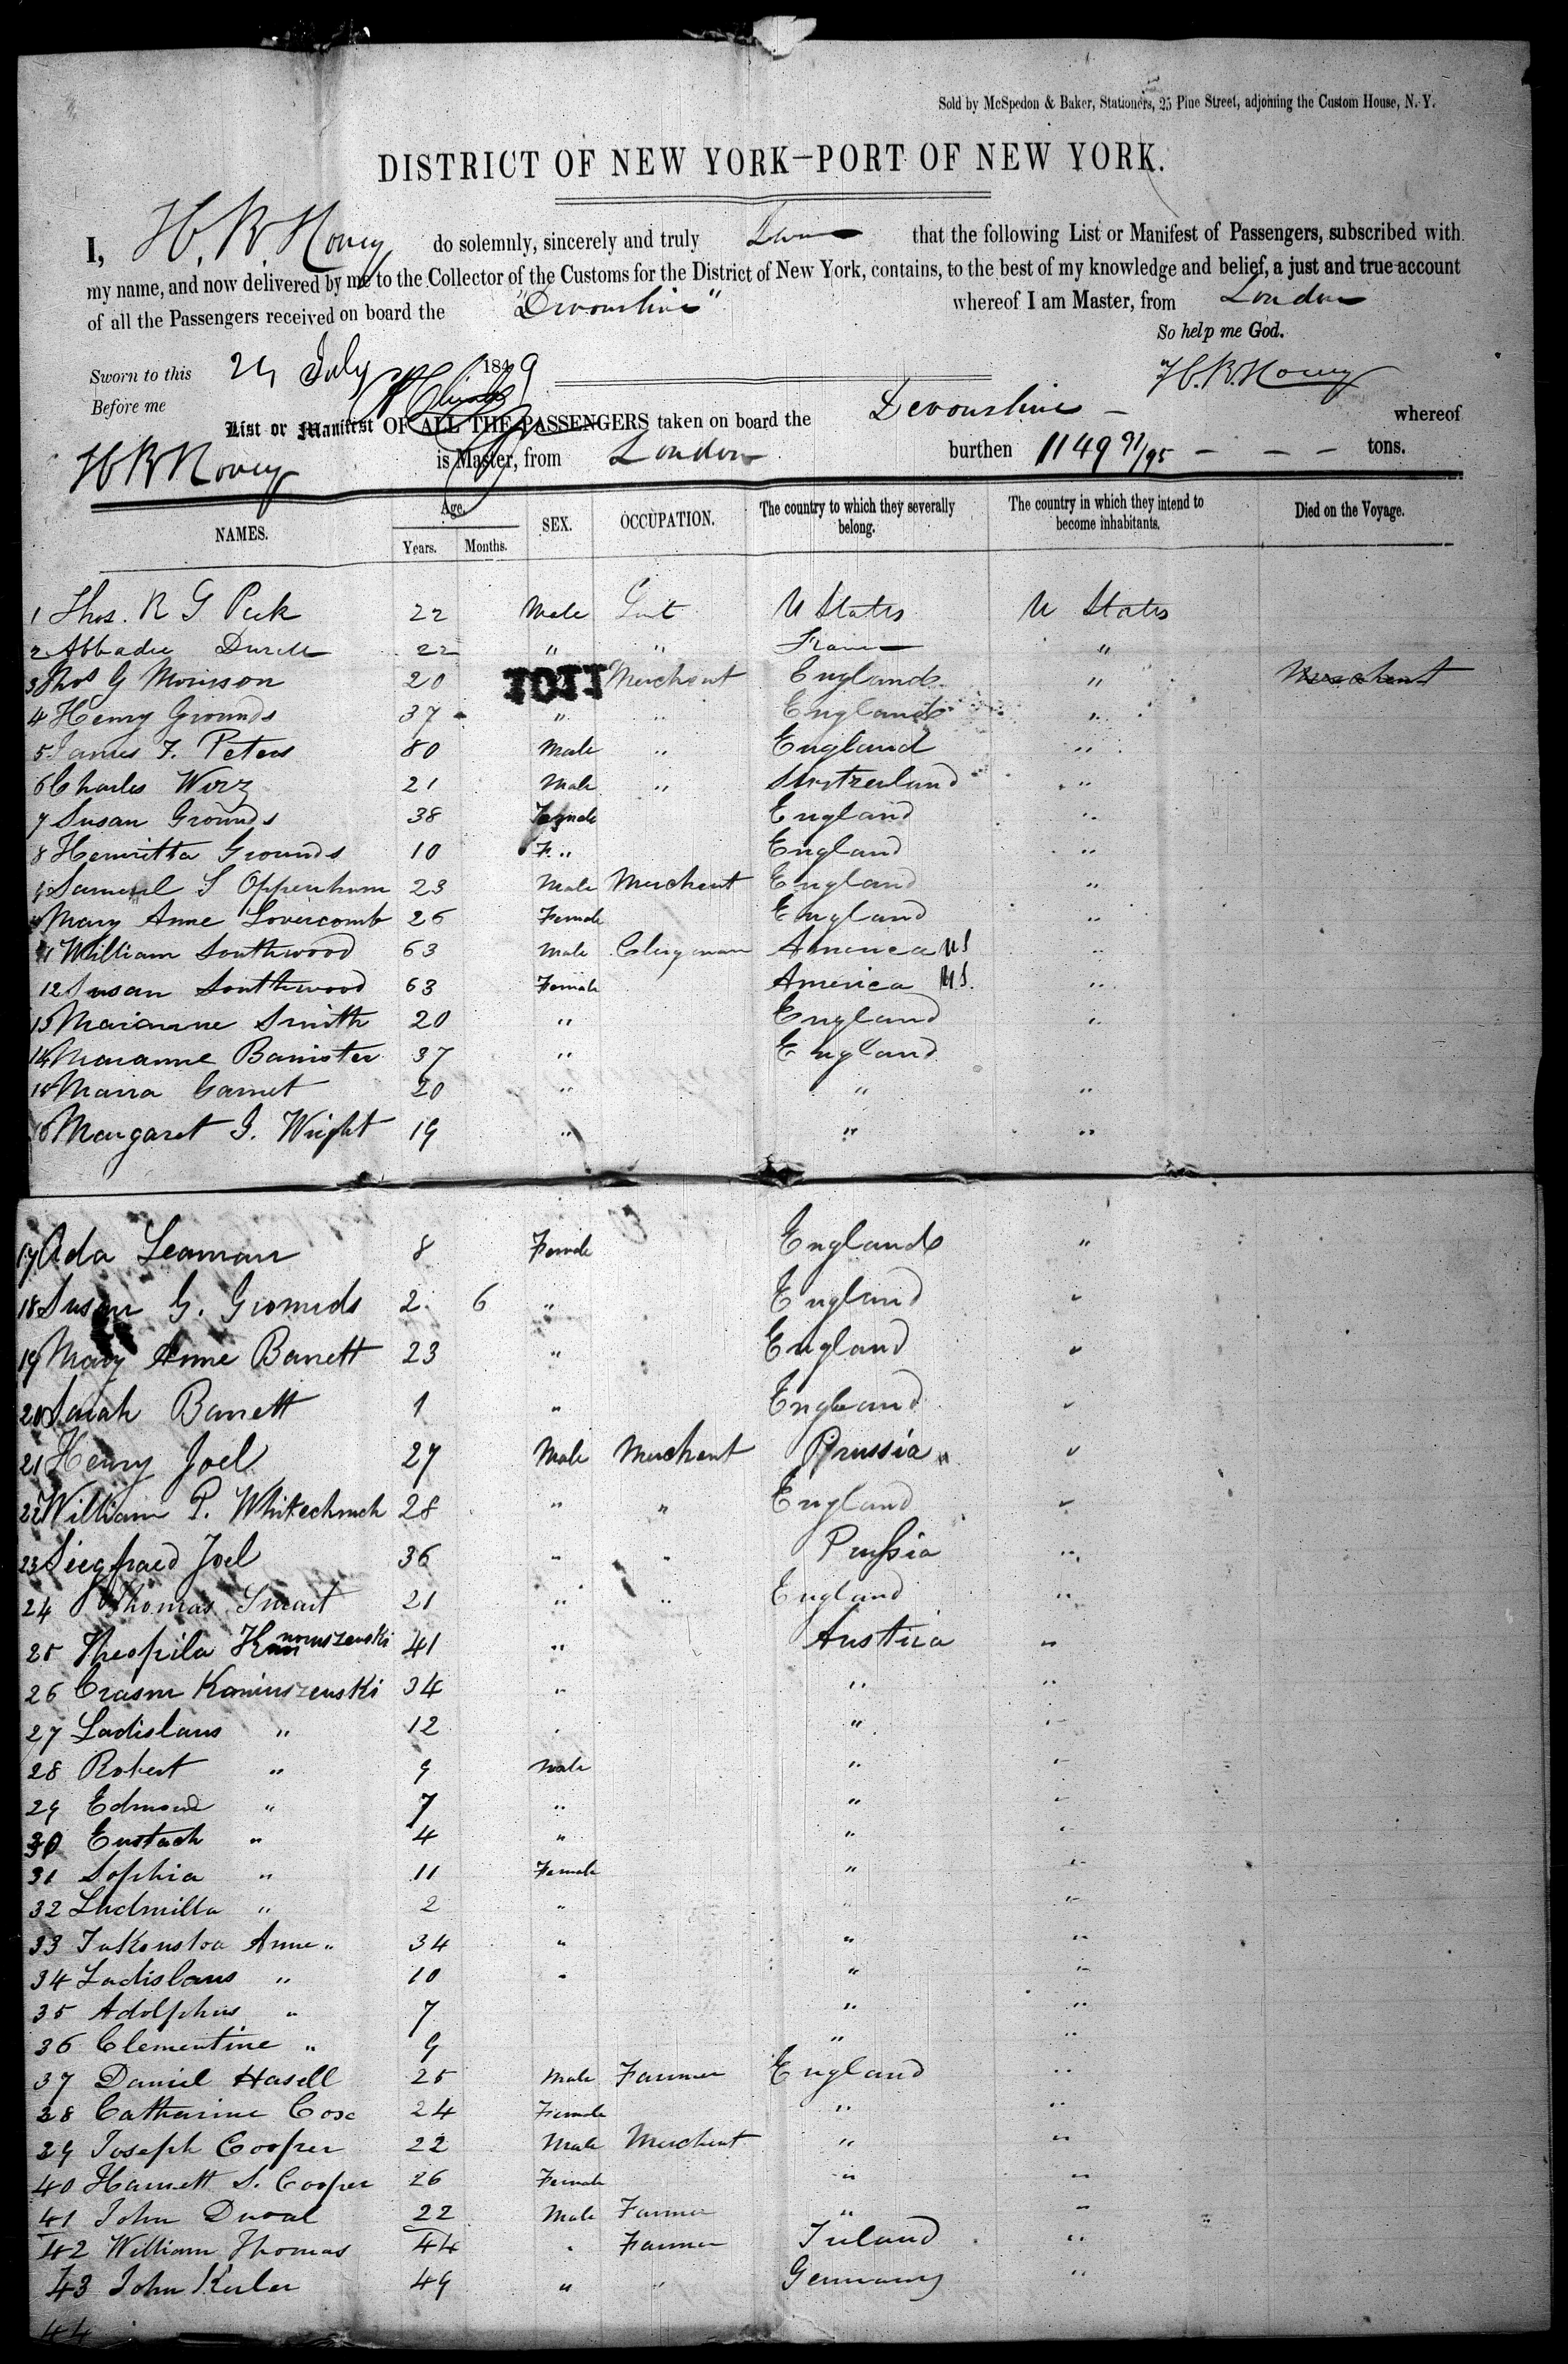 Sold by McSpedon & Baker, Stationers, 25 Pine Street, adjoining the Custom House, N. Y.
DISTRICT OF NEW YORK—PORT OF NEW YORK.
I, H. R. Hovey do solemnly, sincerely and truly Swear that the following List or Manifest of Passengers, subscribed with
my name, and now delivered by me to the Collector of the Customs for the District of New York, contains, to the best of my knowledge and belief, a just and true account
of all the Passengers received on board the "Devonshire" whereof I am Master, from London
So help me God.
Sworn to this 24 July 1849 H. R. Hovey
Before me
List or Manifest OF ALL THE PASSENGERS taken on board the Devonshire — whereof
H R Hovey is Master, from London burthen 1149 91/95 — — — tons.
NAMES. Age. Years. Months. SEX. OCCUPATION. The country to which they severally belong. The country in which they intend to become inhabitants. Died on the Voyage.
1 Thos. R G Peck 22 Male Gent U States U States
2 Abbadie 22 " " France "
3 Thos G Morrison 20 1011 Merchant England " Merchant
4 Henry Grounds 37 " " England "
5 James F. Peters 80 Male " England "
6 Charles Wirz 21 Male " Switzerland "
7 Susan Grounds 38 Female England "
8 Henrietta Grounds 10 F " England "
9 Samuel S Oppenheim 23 Male Merchant England "
Mary Anne Lovercomb 26 Female England "
11 William Southwood 63 Male Clergyman America US "
12 Susan Southwood 63 Female America US "
13 Marianne Smith 20 " England "
14 Marianne Banister 37 " England
15 Maria Garnet 20 " " "
16 Margaret G. Wright 19 " " "
17 Ada Leaman 8 Female England "
18 Susan G. Grounds 2 6 " England "
19 Mary Anne Barrett 23 " England "
20 Sarah Barrett 1 " England "
21 Henry Joel 27 Male Merchant Prussia "
22 William P. Whitechurch 28 " " England "
23 Siegfried Joel 36 " " Prussia "
24 Thomas Smart 21 " " England "
25 Theofila 41 " Austria "
26 Kaminszenski 34 " " "
27 Ladislaus " 12 " " "
28 Robert " 9 Male " "
29 Edmond " 7 " " "
30 Eustach " 4 " " "
31 Sophia " 11 Female " "
32 Ludmilla " 2 " " "
33 Anne " 34 " " "
34 Ladislaus " 10 " " "
35 Adolphus " 7 " "
36 Clementine " 9 " "
37 Daniel Hasell 25 Male Farmer England "
38 Catharine Cox 24 Female " "
39 Joseph Cooper 22 Male Merchant " "
40 Harriett S. Cooper 26 Female " "
41 John Duval 22 Male Farmer " "
42 William Thomas 44 " Farmer Ireland "
43 John Kerler 49 " " Germany "
44